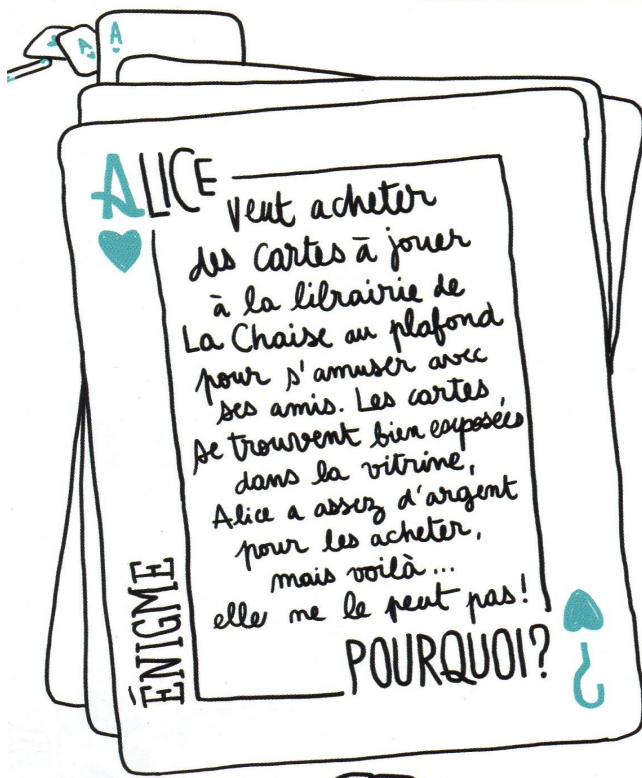 A
A
ALICE
veut acheter
des cartes à jouer
à la librairie de
La Chaise au plafond
pour s'amuser avec
ses amis. Les cartes
se trouvent bien exposées
dans la vitrine,
Alice a assez d'argent
pour les acheter,
mais voilà...
elle ne le peut pas!
POURQUOI?
ÉNIGME
?